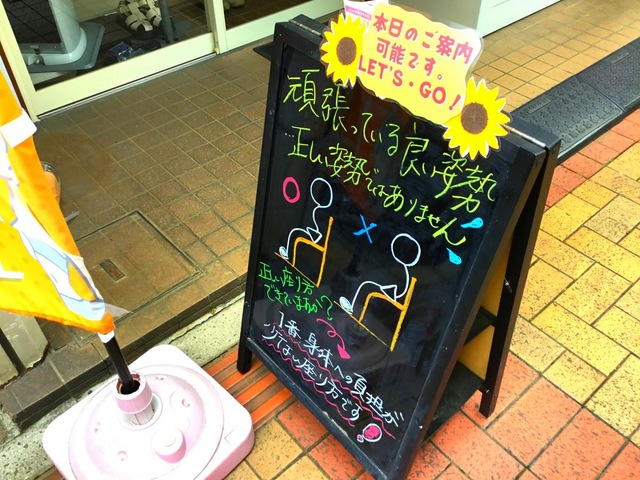 本日のご案内
可能です。
LET'S・GO!
頑張っている良い姿勢
正しい姿勢ではありません
正しい座り方
できていますか?
1番、身体への負担が
少ない座り方です